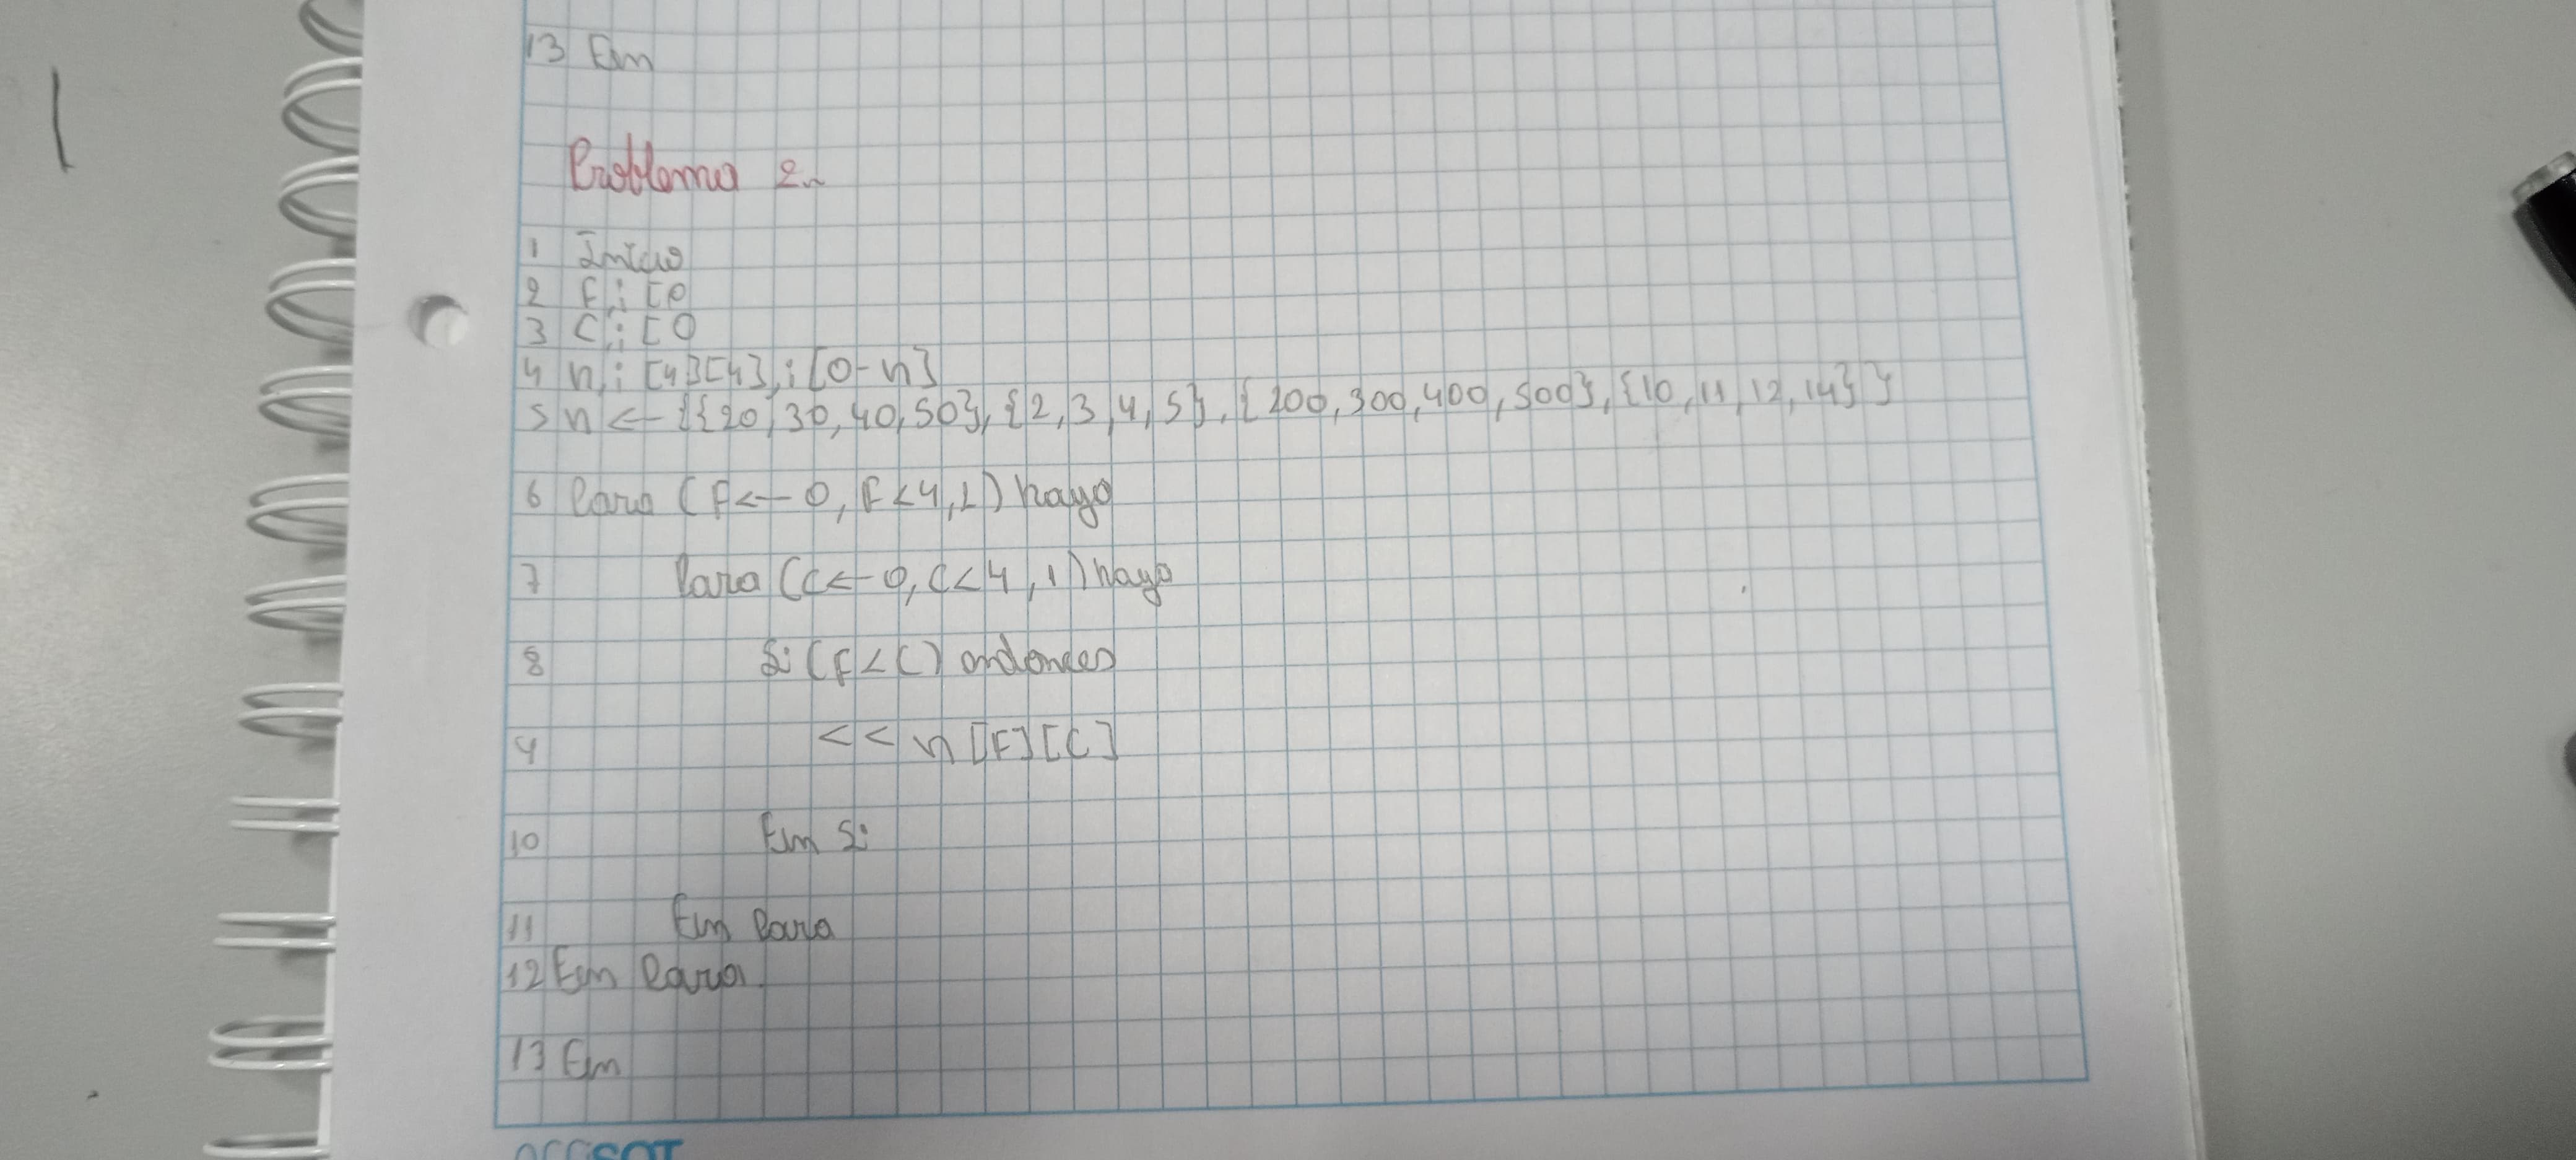 13 Fin
Problema 2.
1 Inicio
2 F,: [0
3 C,: [0
4 n,: [4][4],: [0-n]
5 n <- {{20,30,40,50}, {2,3,4,5}, {200,300,400,500}, {10,11,12,14}}
6 Para (F<-0, F<4,1) haga
7 Para (C<-0, C<4,1) haga
8 Si (F<C) entonces
9 << n[F][C]
10 Fin Si
11 Fin Para
12 Fin Para
13 Fin